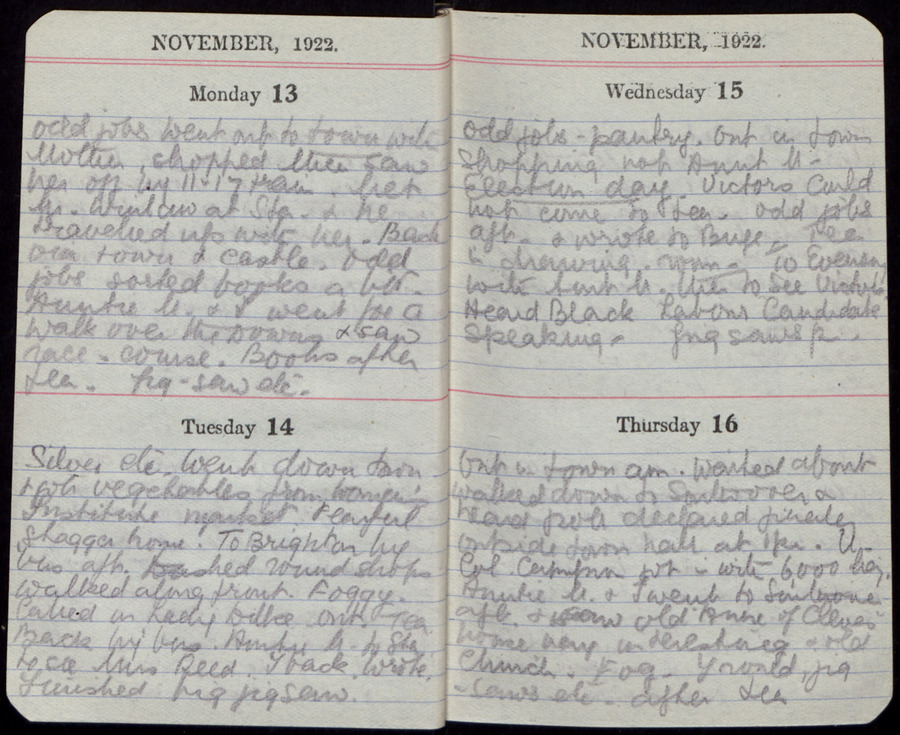 NOVEMBER, 1922.
Monday 13
odd jobs went out to town with
Mother, shopped then saw
her off by 11-17 train. Met
Mr. at Sta. & he
travelled up with her. Back
town & castle. odd
jobs sorted books a bit.
Auntie M. & I went for a
walk over the Downs & saw
race-course. Books after
tea. Jig-saw etc.
Tuesday 14
Silver etc. Went down town
& got vegetables from Women's
Institute market
home. To Brighton by
bus aft. round shops
walked along front. Foggy.
Called on Lady out. Tea
Back by bus. Auntie M. to Sta.
to see Miss Reed. I back. Wrote.
Finished jigsaw.
NOVEMBER, 1922.
Wednesday 15
odd jobs - pantry. Out in town
shopping not Aunt M-
Election day. Victors could
not come to tea. odd jobs
aft. & wrote to Tea
in drawing-room. To Evensong
with Aunt M. then to see Victors
Heard Black Labour Candidate
speaking. Jigsaws
Thursday 16
Out in town am. Waited about
walked down to Southover &
heard poll declared finally
outside town hall at 1pm.
Col Campion got in with 6000
Auntie M. & I went to Southover
aft. & saw old Anne of Cleves
house very interesting & old
Church. Fog. Jig
-saws etc. after tea